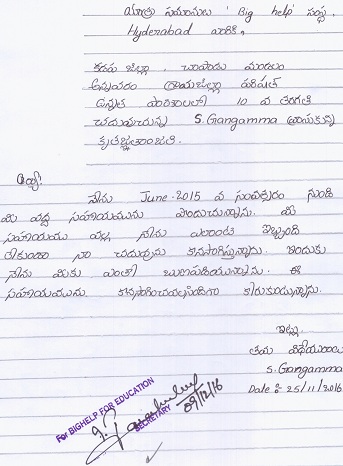 మాతృ సమానులు ' Big help' సంస్థ,
Hyderabad వారికి,
కడప జిల్లా, చాపాడు మండలం
జిల్లా పరిషత్
ఉన్నత పాఠశాలలో 10 వ తరగతి
చదువుచున్న S.Gangamma వ్రాయుకున్న
కృతజ్ఞతాంజలి.
అయ్యా!
నేను June-2015 వ సంవత్సరం నుండి
మీ వద్ద సహాయమును పొందుచున్నాను. మీ
సహాయము వల్ల నేను ఎలాంటి ఇబ్బంది
లేకుండా నా చదువును కొనసాగిస్తున్నాను. ఇందుకు
నేను మీకు ఎంతో ఋణపడియున్నాను. ఈ
సహాయమును కొనసాగించవలసిందిగా కోరుకుంటున్నాను.
ఇట్లు,
తమ విధేయురాలు
S.Gangamma
Date :- 25/11/2016
For BIGHELP FOR EDUCATION
SECRETARY
09/12/16